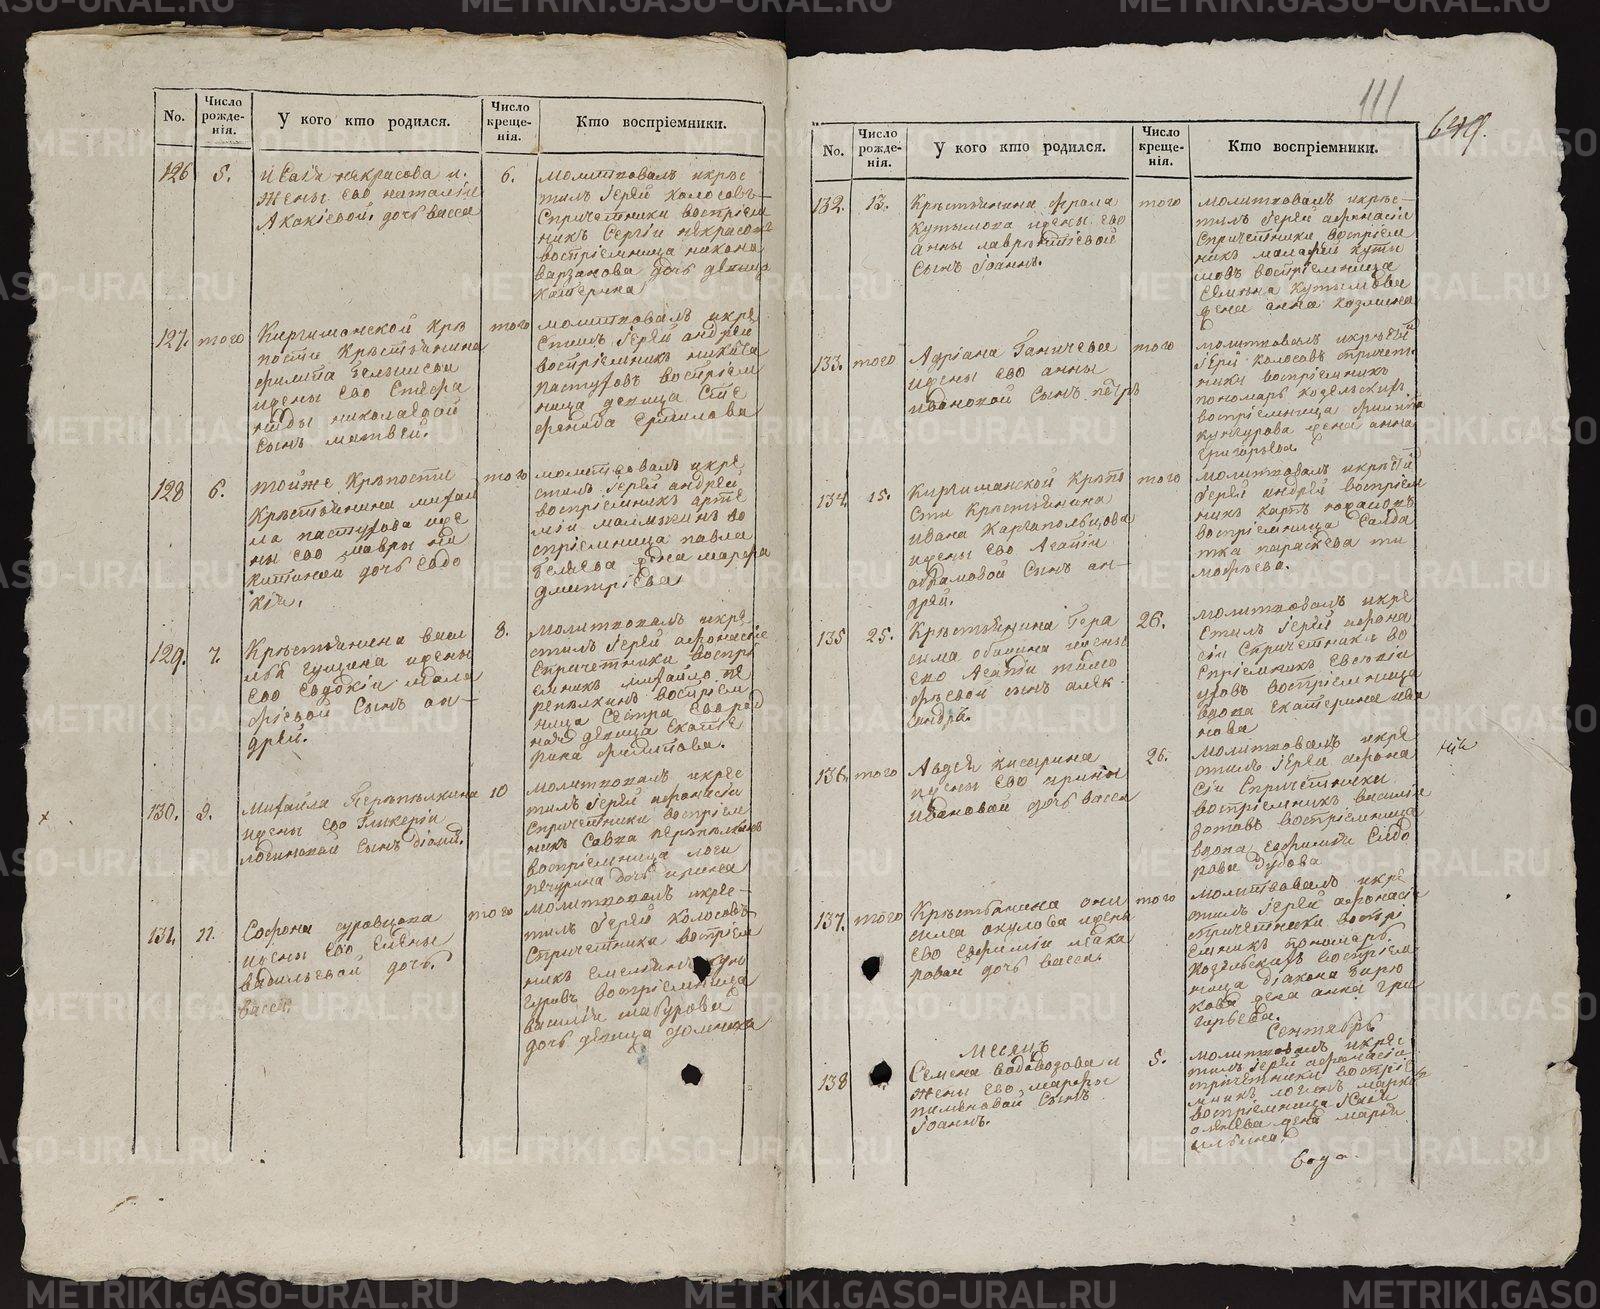 No.
Число рожде-нія.
У кого кто родился.
Число креще-нія.
Кто воспріемники.
126
5.
некрасова и
жены его наталіи
Акакіевой. дочь васса
6.
молитвовалъ икрес
тилъ Іерей колосовъ
Спричетники воспріем
никъ Сергіи некрасовъ
воспріемница
дочь девица
катерина
127.
того
Киргишанской крѣ
пости крѣстьянина
филипа
жены его Степа
ниды николаевой
сынъ матвей.
того
молитвовалъ икре
стилъ Іерей андрей
воспріемникъ никита
пастуховъ воспріем
ница девица Сте
панида
128
6.
тойже крѣпости
Крѣстьянина михаи
ла пастухова же
ны его мавры ни
китиной дочь Евдо
кія.
того
молитвовалъ икре
стилъ Іерей андрей
воспріемникъ арте
мій во
спріемница павла
беляева жена марфа
дмитріева
129.
7.
Крѣстьянина васи
лья гущина жены
его Евдокіи
сынъ ан-
дрей.
8.
молитвовалъ икре
стилъ Іерей афонасіе
Спричетники воспрі
емникъ михайло пе
репелкинъ воспріем
ница сестра его род
ная девица Екате
рина филипова.
130.
9.
михайла Перепелкина
жены его Гликеріи
логиновой сынъ
10
молитвовалъ икрес
тилъ Іерей афонасіи
Спричетники воспріем
никъ Савва перепелкинъ
воспріемница логи
печурина дочь ирина
131.
11.
Софона суровцова
жены его Елены
васильевой дочь.
васса.
того
молитвовалъ икре-
тилъ Іерей колосовъ
Спричетники воспріем
никъ Емельянъ
воспріемница
василіи шабурова
дочь девица
111
649.
No.
Число рожде-нія.
У кого кто родился.
Число креще-нія.
Кто воспріемники.
132.
13.
Крѣстьянина фрола
кутымова жены его
анны лаврентіевой
сынъ Іоаннъ.
того
молитвовалъ икрес-
тилъ Іерей афонасіи
Спричетники воспріем
никъ куты
мовъ воспріемница
кутымова
жена анна козмина
133.
того
Адріана Ганичева
жены его анны
ивановой сынъ петръ
того
молитвовалъ икрестил
Іерей колосовъ причет
ники воспріемникъ
пономарь козельскихъ
воспріемница филипа
кунгурова жена анна
григорьева
134.
15.
Киргишанской крѣпо
сти крѣстьянина
ивана Каргапольцова
жены его Агапіи
абрамовой сынъ ан-
дрей.
того
молитвовалъ икрестил
Іерей андрей воспріем
никъ карпъ
воспріемница солда
тка параскева ти
мофеева.
135
25.
Крѣстьянина Гера
сима жены
его Агапіи тимо
феевой сынъ алек
сандръ.
26.
молитвовалъ икре
стилъ Іерей афона
сіи Спричетники во
спріемникъ Евсевіи
воспріемница
вдова Екатерина ива
нова
136.
того
Авдея
жены его ирины
ивановой дочь васса
26.
молитвовалъ икре
стилъ Іерей афона
сіи Спричетники
воспріемникъ василіи
воспріемница
вдова Евфимія Сидо
рова
137.
того
Крѣстьянина они
сима окулова жены
его Евфиміи мака
ровой дочь васса.
того
молитвовалъ икре
стилъ Іерей афонасіи
Спричетники воспрі
емникъ пономарь
козельскихъ воспріем
ница діакона бирю
кова жена анна гри
горьева.
Месяцъ
Сентябрь
138
Семена водовозова и
жены его марфы
пименовой сынъ
Іоаннъ.
5.
молитвовалъ икрес
тилъ Іерей афонасіи
Спричетники воспріе
мникъ
воспріемница
жена марья
ильина.